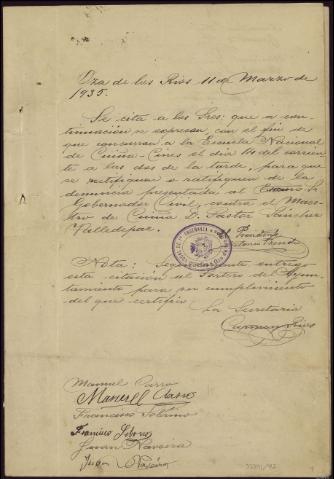 Oza de los Rios 11 de Marzo de
1935.
Se cita a los Sres. que a con-
tinuación se expresan, con el fin de
que concurran a la Escuela Nacional
de Cuiña-Cines el dia 14 del corrien-
te a las dos de la tarde, para que
se ratifiquen o rectifiquen de la
denuncia presentada al Sr.
Gobernador Civil, contra el Maes-
tro de Cuiña D. Pastor Sánchez
El Presidente
Nota: entrega
esta citación al Portero del Ayun-
tamiento para su cumplimiento
del que certifico
La Secretaria
Carmen Rios
Manuel Parra
Manuel
Francisco Sobrino
Francisco Sobrino
Juan Naveira
Juan Naveira